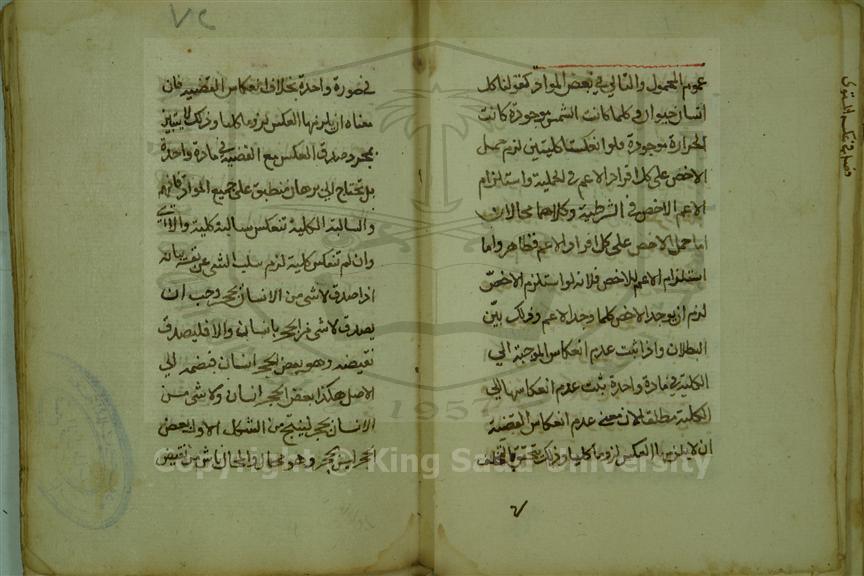 عموم المحمول والتالي في بعض المواد كقولنا كل
انسان حيوان وكلما كانت الشمس موجودة كانت
الحرارة موجودة فلو انعكستا كليتين لزم حمل
الاخص على كل افراد الاعم في الحملية واستلزام
الاعم الاخص في الشرطية وكلاهما محالان
اما حمل الاخص على كل افراد الاعم فظاهر واما
استلزام الاعم للاخص فلانه لو استلزم الاخص
لزم ان يوجد الاخص كلما وجد الاعم وذلك بين
البطلان واذا ثبت عدم انعكاس الموجبة الى
الكلية في مادة واحدة ثبت عدم انعكاسها الى
الكلية مطلقا لان معنى عدم انعكاس القضية
ان لا يلزمها العكس لزوما كليا وذلك يتحقق بالتخلف
في صورة واحدة بخلاف انعكاس القضية فان
معناه ان يلزمها العكس لزوما كليا وذلك لا يتبين
بمجرد صدق العكس مع القضية في مادة واحدة
بل تحتاج الى برهان منطبق على جميع المواد
والسالبة الكلية تنعكس سالبة كلية والا اي
وان لم تنعكس كلية لزم سلب الشئ عن نفسه بيانه
اذا صدق لا شئ من الانسان بحجر وجب ان
يصدق لا شئ من الحجر بانسان والا فليصدق
نقيضه وهو بعض الحجر انسان فنضمه الى
الاصل هكذا بعض الحجر انسان ولا شئ من
الانسان بحجر لينتج من الشكل الاول بعض
الحجر ليس بحجر وهو محال والمحال ناش من نقيض
1957
Copyright © King Saud University